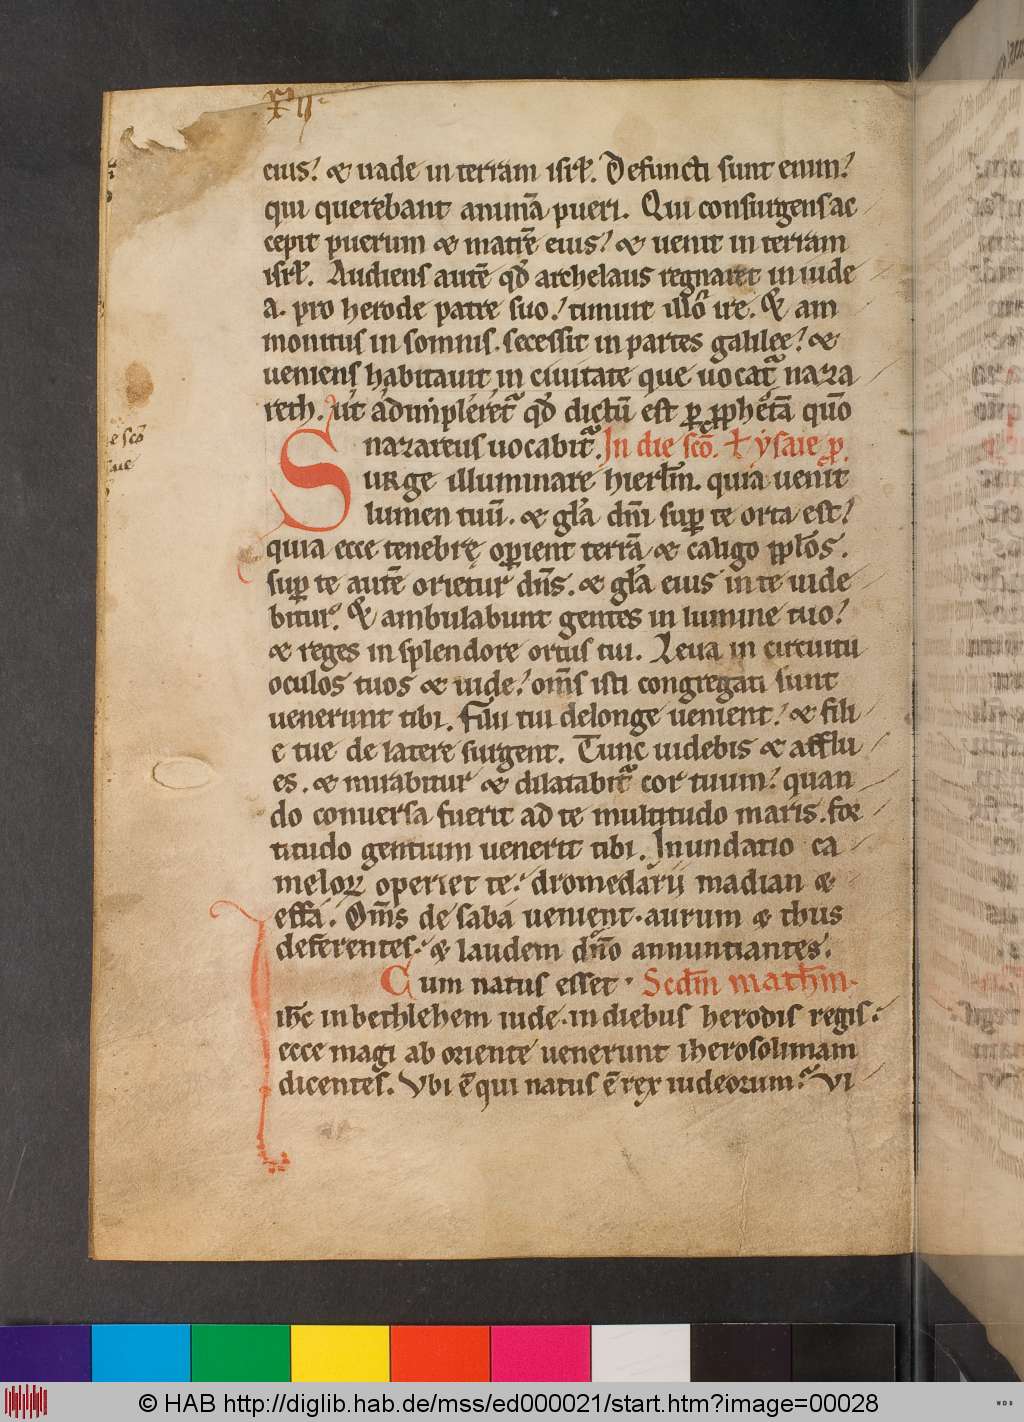 xii.
eius! & uade in terram isrł. Defuncti sunt enim!
qui querebant animā pueri. Qui consurgens ac
cepit puerum & matrē eius! & uenit in terram
isrł. Audiens autē qđ archelaus regnaret in iude
a. pro herode patre suo! timuit illo ire. & am
monitus in somnis. secessit in partes galilee! &
ueniens habitauit in ciuitate que uocat᷑ naza
reth. ut adimpleret᷑ qđ dictū est ꝑ ꝓphetā quō
nazareus uocabit᷑. In die scō. ysaie ꝓ.
Surge illuminare hierlm̄. quia uenit
lumen tuū. & gła dn̄i suꝑ te orta est!
quia ecce tenebrę oꝑient terrā & caligo ꝓplos.
suꝑ te autē orietur dn̄s. & gła eius in te uide
bitur. & ambulabunt gentes in lumine tuo!
& reges in splendore ortus tui. Leua in circuitu
oculos tuos & uide! om̄s isti congregati sunt
uenerunt tibi. filii tui delonge uenient! & fili
e tue de latere surgent. Tunc uidebis & afflu
es. & mirabitur & dilatabit᷑ cor tuum! quan
do conuersa fuerit ad te multitudo maris. for
titudo gentium uenerit tibi. Inundatio ca
meloꝝ operiet te! dromedarij madian &
effa. Om̄s de saba uenient. aurum & thus
deferentes! & laudem dn̄o annuntiantes.
Cum natus esset. Scdm̄ mathm̄.
ihc in bethlehem iude. in diebus herodis regis!
ecce magi ab oriente uenerunt iherosolimam
dicentes. Vbi ē qui natus ē rex iudeorum! Vi
© HAB http://diglib.hab.de/mss/ed000021/start.htm?image=00028